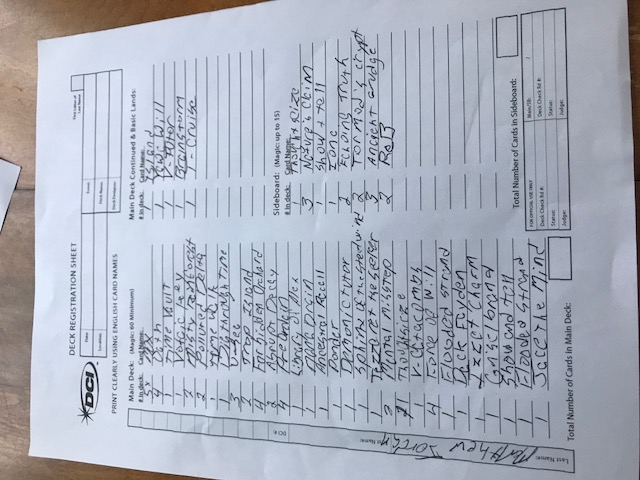 DCI
DECK REGISTRATION SHEET
First Letter of
Last Name:
Date:
Event:
Location:
Deck Name:
Deck Designer:
PRINT CLEARLY USING ENGLISH CARD NAMES
Main Deck: (Magic: 60 Minimum)
# in deck: Card Name:
5x MX
4 Oath
1 Time Vault
1 Voltaic Key
2 Misty Rainforest
2 Polluted Delta
1 Time Walk
1 Dig through Time
3 U-Sea
2 Trop Island
4 Forbidden Orchard
2 Abrupt Decay
4 Preordain
1 Library of Alex
1 Mana Drain
1 Ancestral Recall
1 Ponder
1 Demonic tutor
1 Sphinx of the steel wind
1 Tezzeret the Seeker
2 Mental Misstep
1 Thoughtsieze
1 V-Catacombs
4 Force of Will
1 Flooded strand
1 Dack Fayden
1 Izzet Charm
1 Griselbrand
1 Show and tell
1 Flooded Strand
1 Jace the Mind
Total Number of Cards in Main Deck:
Main Deck Continued & Basic Lands:
# in deck: Card Name:
1 Island
1 Yawg Will
1 V-Tutor
1 Brainstorm
1 T-Cruise
Sideboard: (Magic: up to 15)
# in deck: Card Name:
1 Thoughtseize
3 Nature's Claim
1 Show + tell
1 Ione
2 Echoing Truth
2 Tormod's crypt
3 Ancient Grudge
2 ReB
Total Number of Cards in Sideboard:
FOR OFFICIAL USE ONLY
Main/SB: /
Deck Check Rd #:
Deck Check Rd #:
Status:
Status:
Judge:
Judge:
DCI #:
Last Name: Matthew